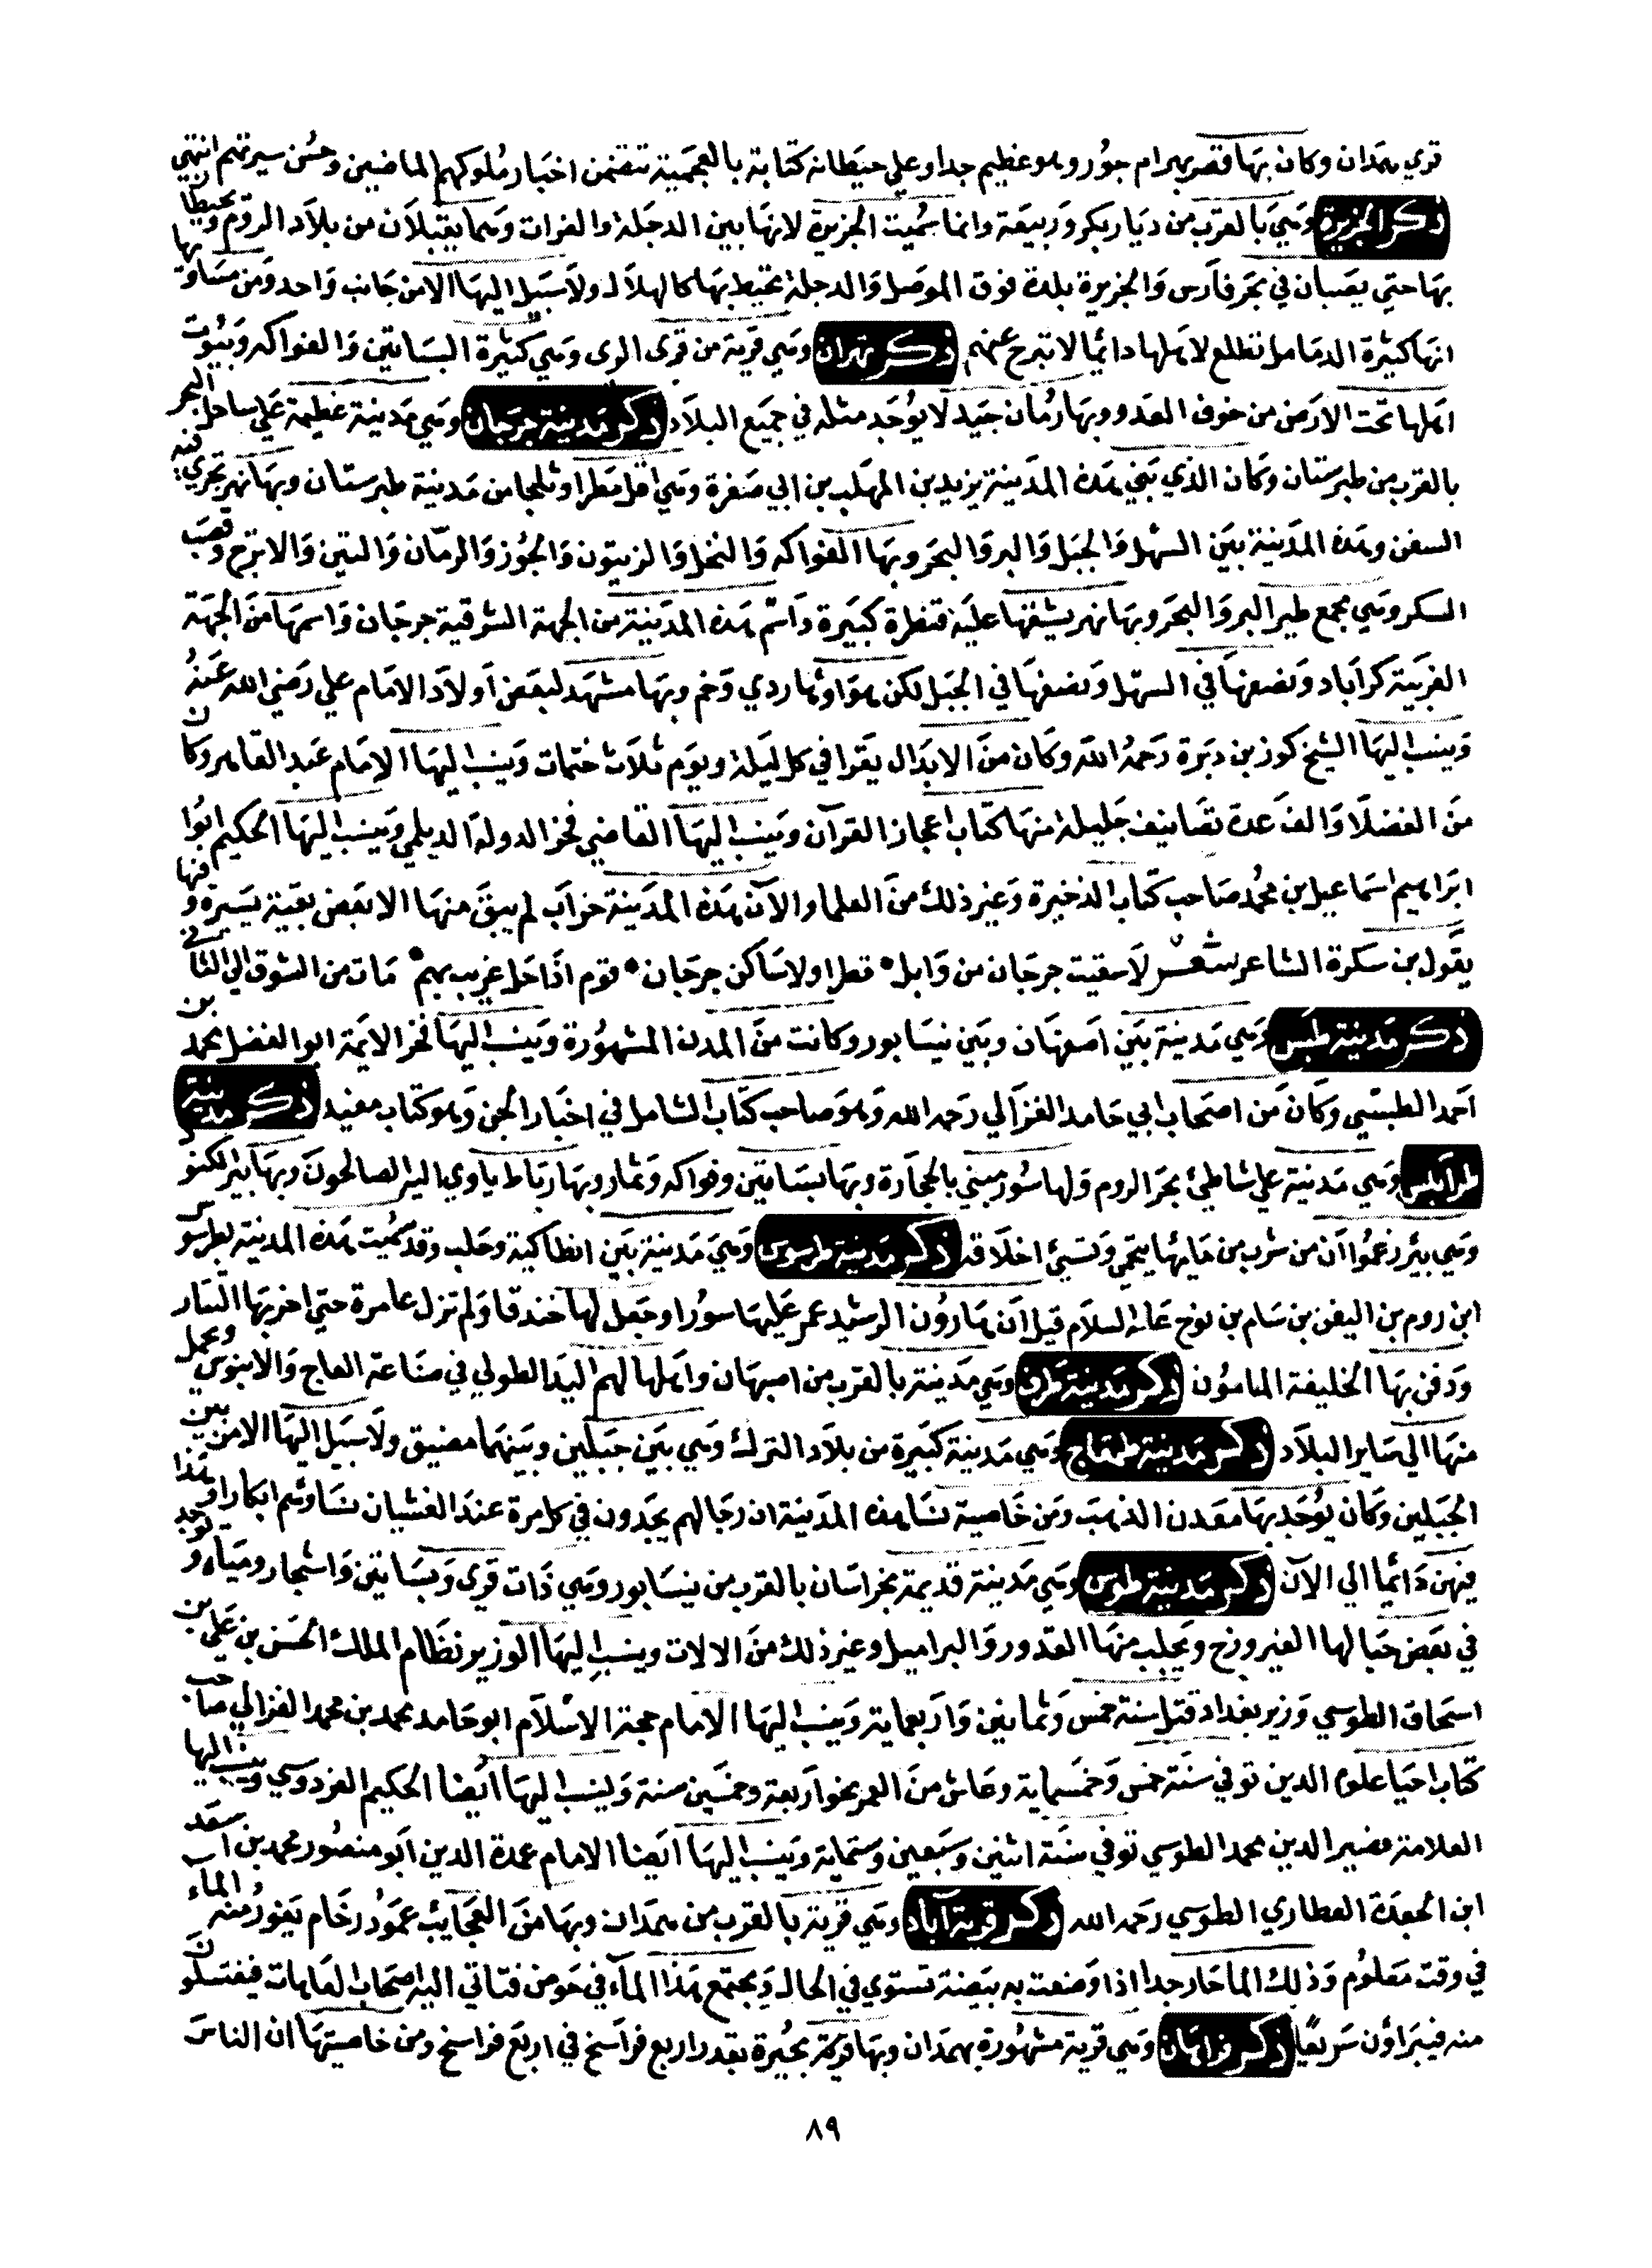 قري همدان وكان بها قصر بهرام جور وهو عظيم جدا وعلي حيطانه كتابة بالعجمية تتضمن اخبار ملوكهم الماضين وحسن سيرتهم انتهي
ذكر الجزيرة وهي بالقرب من ديار بكر وربيعة وانما سميت الجزيرة لانها بين الدجلة والفرات وهما يقبلان من بلاد الروم ويحيطان
بها حتي يصبان في بحر فارس والجزيرة بلدة فوق الموصل والدجلة تحيط بها كالهلال ولا سبيل اليها الا من جانب واحد ومن مساوئها
انها كثيرة الدمامل تطلع لاهلها دائما لا تبرح عنهم ذكر تهران وهي قرية من قرى الرى وهي كثيرة البساتين والفواكه وبيوت
اهلها تحت الارض من خوف العدو وبها رمان جيد لا يوجد مثله في جميع البلاد ذكر مدينة جرجان وهي مدينة عظيمة علي ساحل البحر
بالقرب من طبرستان وكان الذي بني هذه المدينة يزيد بن المهلب بن ابي صفرة وهي اقل مطرا وثلجا من مدينة طبرستان وبها نهر تجري فيه
السفن وهذه المدينة بين السهل والجبل والبر والبحر وبها الفواكه والنخل والزيتون والجوز والرمان والتين والاترج وقصب
السكر وهي مجمع طير البر والبحر وبها نهر يشقها عليه قنطرة كبيرة واسم هذه المدينة من الجهة الشرقية جرجان واسمها من الجهة
الغربية كراباد ونصفها في السهل ونصفها في الجبل لكن هواوها ردي وخم وبها مشهد لبعض اولاد الامام علي رضي الله عنه
وينسب اليها الشيخ كوز بن دبرة رحمه الله وكان من الابدال يقرا في كل ليلة ويوم ثلاث ختمات وينسب اليها الامام عبد القاهر وكان
من الفضلا والف عدة تصانيف جليلة منها كتاب اعجاز القرآن وينسب اليها القاضي فخر الدولة الديلمي وينسب اليها الحكيم ابوا
ابراهيم اسماعيل بن محمد صاحب كتاب الذخيرة وغير ذلك من العلما والآن هذه المدينة خراب لم يبق منها الا بعض بقية يسيرة وفيها
يقول بن سكرة الشاعر شعر لا سقيت جرجان من وابل * قطرا ولا ساكن جرجان * قوم اذا حل غريب بهم * مات من الشوق الي الثاني
ذكر مدينة طبس وهي مدينة بين اصفهان وبين نيسابور وكانت من المدن المشهورة وينسب اليها فخر الايمة ابو الفضل محمد بن
احمد الطبسي وكان من اصحاب ابي حامد الغزالي رحمه الله وهو صاحب كتاب الشامل في اخبار الجن وهو كتاب مفيد ذكر مدينة
طرابلس وهي مدينة علي شاطئ بحر الروم ولها سور مبني بالحجارة وبها بساتين وفواكه وثمار وبها رباط ياوي اليه الصالحون وبها بئر الكنود
وهي بئر زعموا ان من شرب من مايها يتحمق وتسئ اخلاقه ذكر مدينة طرسوس وهي مدينة بين انطاكية وحلب وقد سميت هذه المدينة بطرسوس
ابن روم بن اليفن بن سام بن نوح عليه السلام قيل ان هارون الرشيد عمر عليها سورا وجعل لها خندقا ولم تزل عامرة حتي اخربها التتار
ودفن بها الخليفة المامون ذكر مدينة وهي مدينة بالقرب من اصبهان واهلها لهم اليد الطولي في صناعة العاج والابنوس ويحمل
منها الي ساير البلاد ذكر مدينة طمغاج وهي مدينة كبيرة من بلاد الترك وهي بين جبلين وبينهما مضيق ولا سبيل اليها الا من بين
الجبلين وكان يوجد بها معدن الذهب ومن خاصية نسا هذه المدينة ان رجالهم يجدون في كل مرة عند الغشيان نساؤهم ابكارا وهذا
فيهن دائما الي الآن ذكر مدينة طوس وهي مدينة قديمة بخراسان بالقرب من نيسابور وهي ذات قرى وبساتين واشجار ومياه ويوجد
في بعض جبالها الفيروزج ويجلب منها القدور والبراميل وغير ذلك من الالات وينسب اليها الوزير نظام الملك الحسن بن علي بن
اسحاق الطوسي وزير بغداد قتل سنة خمس وثمانين واربعماية وينسب اليها الامام حجة الاسلام ابو حامد محمد بن محمد الغزالي صاحب
كتاب احيا علوم الدين توفي سنة خمس وخمسماية وعاش من العمر نحو اربعة وخمسين سنة وينسب اليها ايضا الحكيم الفردوسي وينسب اليها
العلامة نصير الدين محمد الطوسي توفي سنة اثنين وسبعين وستماية وينسب اليها ايضا الامام عمدة الدين ابو منصور محمد بن اسعد
ابن الحفدة العطاري الطوسي رحمه الله ذكر قرية آباد وهي قرية بالقرب من همدان وبها من العجايب عمود رخام يفور منه الماء
في وقت معلوم وذلك الما حار جدا اذا وضعت به بيضة تستوي في الحال ويجتمع هذا الماء في حوض فتاتي اليه اصحاب العاهات فيغتسلون
منه فيبراؤن سريعًا ذكر فراهان وهي قرية مشهورة بهمدان وبها بحيرة بقدر اربع فراسخ في اربع فراسخ ومن خاصيتها ان الناس
٨٩